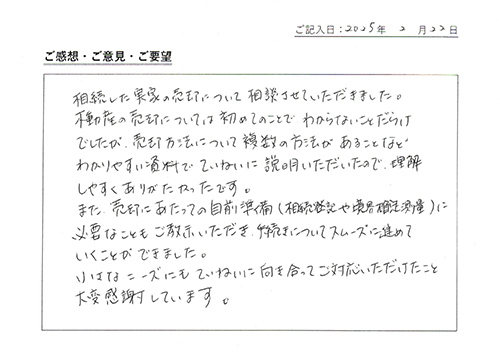 ご記入日：2025年 2月22日
ご感想・ご意見・ご要望
相続した実家の売却について相談させていただきました。
不動産の売却については初めてのことでわからないことだらけ
でしたが、売却方法について複数の方法があることなど
わかりやすい資料でていねいに説明いただいたので、理解
しやすくありがたかったです。
また、売却にあたっての事前準備（相続登記や境界確定測量）に
必要なこともご教示いただき、手続きについてスムーズに進めて
いくことができました。
小さなニーズにもていねいに向き合ってご対応いただけたこと
大変感謝しています。